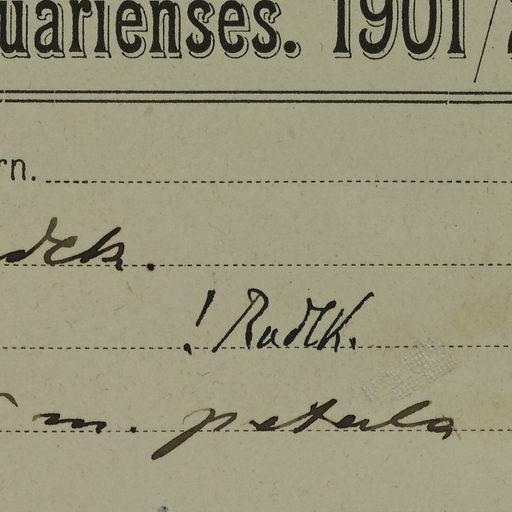 uarienses. 1901/
rn.
dlk.
! Radlk.
m.